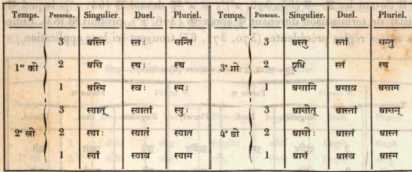 Temps. Personn. Singulier Duel. Pluriel. Temps. Personn. Singulier Duel. Pluriel.
3 अस्ति स्तः सन्ति 3 अस्तु स्तां सन्तु
1er को 2 असि स्थः स्थ 3e गो 2 एधि स्तं स्त
1 अस्मि स्वः स्मः 1 असानि असाव असाम
3 स्यात् स्यातां स्युः 3 आसीत् आस्तां आसन्
2e खो 2 स्याः स्यातं स्यात 4e घो 2 आसीः आस्तं आस्त
1 स्यां स्याव स्याम 1 आसं आस्व आस्म